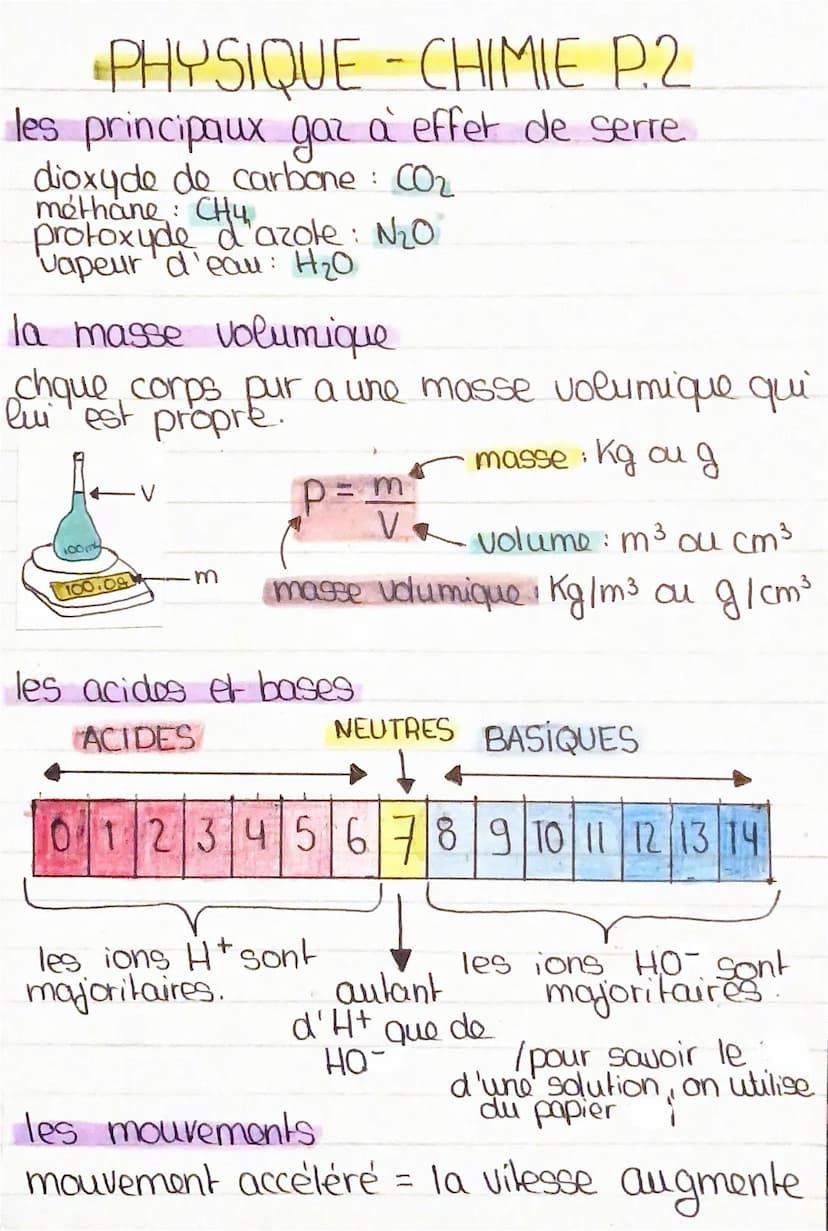 PHYSIQUE - CHIMIE P.2
les principaux gaz à effet de serre
dioxyde de carbone : CO₂
méthane : CH₄
protoxyde d'azote : N₂O
vapeur d'eau : H₂O
la masse volumique
chque corps pur a une masse volumique qui
lui est propre.
masse : Kg ou g
V
P = m
V
100mL
volume : m³ ou cm³
100.0g
m
masse volumique : Kg/m³ ou g/cm³
les acides et bases
ACIDES NEUTRES BASIQUES
0 1 2 3 4 5 6 7 8 9 10 11 12 13 14
les ions H⁺ sont
majoritaires.
autant
d'H⁺ que de
HO⁻
les ions HO⁻ sont
majoritaires.
/pour savoir le
d'une solution, on utilise
du papier
les mouvements
mouvement accéléré = la vitesse augmente